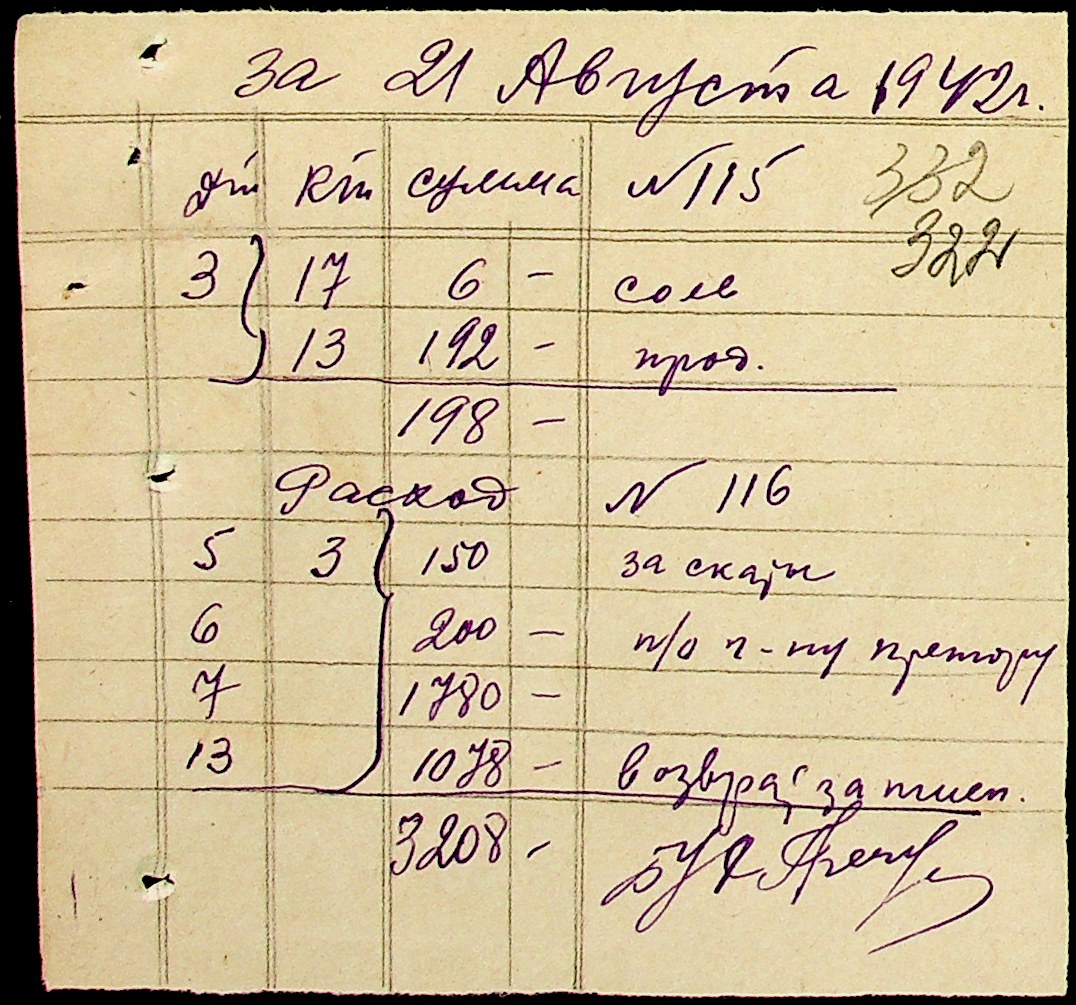 за 21 Августа 1942г.
332
Дт Кт сумма N 115
322
3 17 6 - соль
13 192 - прод.
198 -
Расход N 116
5 3 150 за скаты
6 200 - п/о г-ну претору
7 1780 -
13 1078 - возвра, за пшен.
3208 -